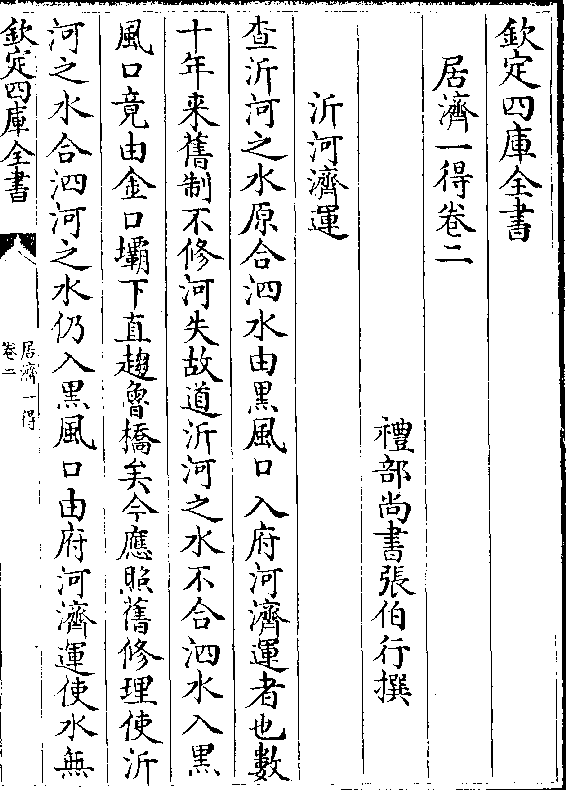 欽定四庫全書
居濟一得卷二
禮部尚書張伯行撰
沂河濟運
查沂河之水原合泗水由黑風口入府河濟運者也數
十年来舊制不修河失故道沂河之水不合泗水入黑
風口竟由金口壩下直趨魯橋矣今應照舊修理使沂
河之水合泗河之水仍入黑風口由府河濟運使水無
欽定四庫全書
居濟一得
卷二